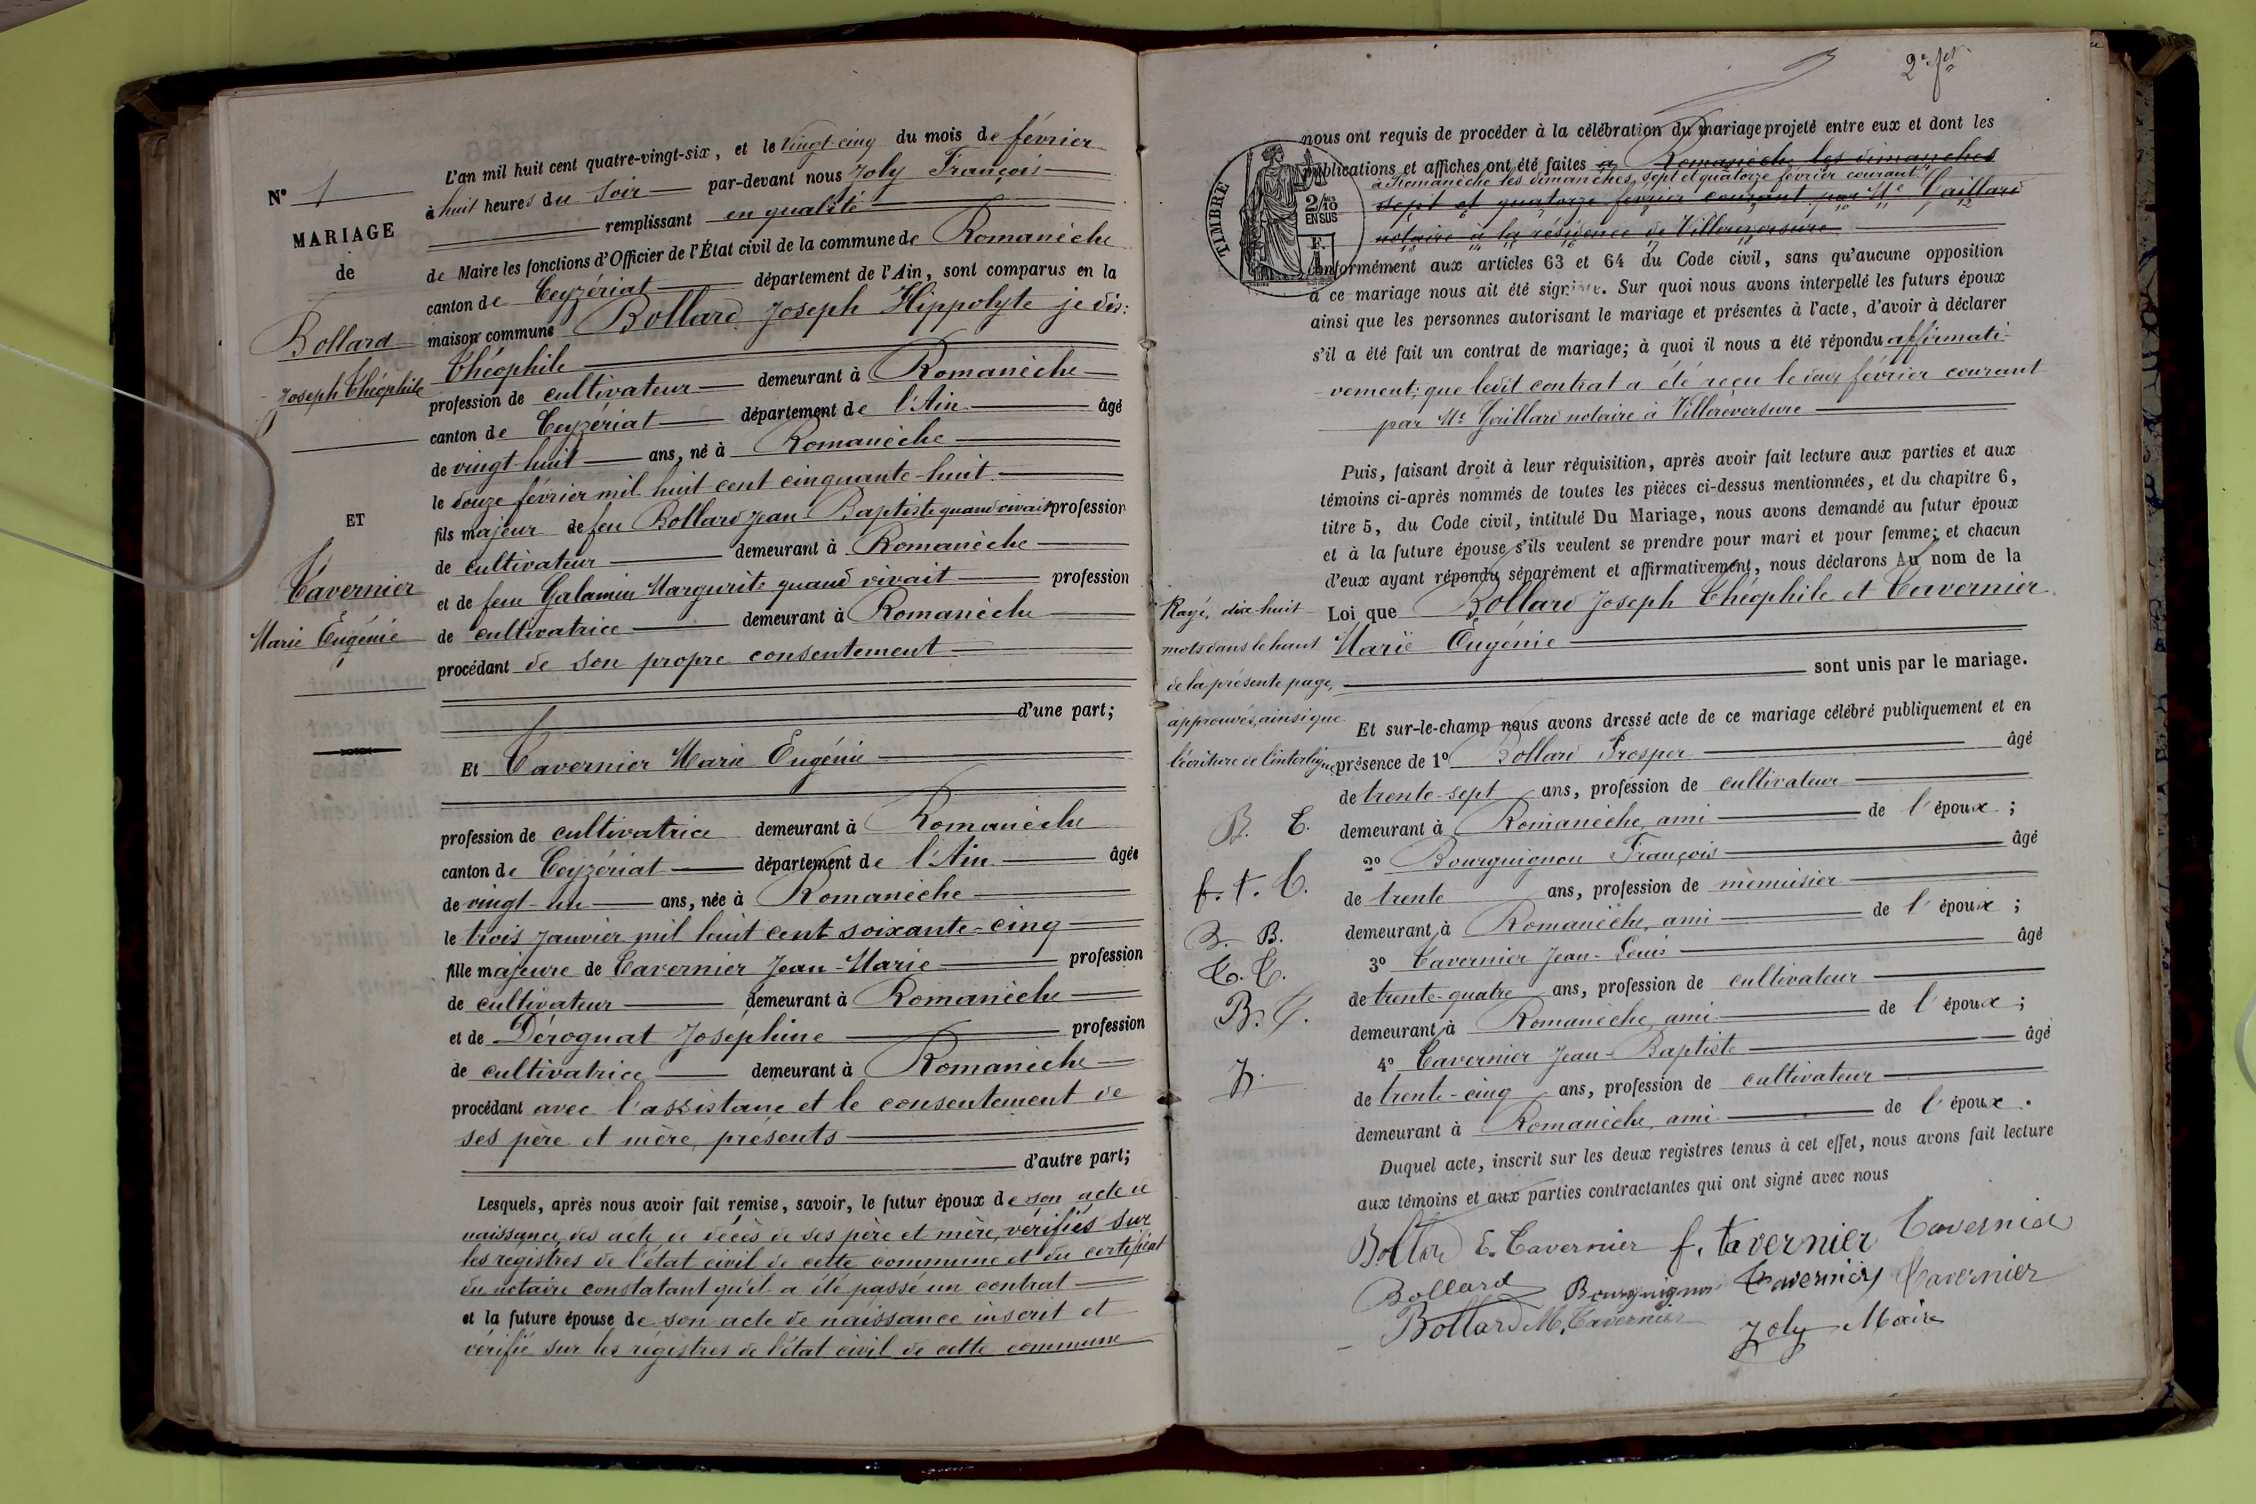 N° 1
MARIAGE
de
Bollard
Joseph Théophile
ET
Tavernier
Marie Eugénie
L'an mil huit cent quatre-vingt-six, et le vingt-cinq du mois de février
à huit heures du soir par-devant nous Joly François
remplissant en qualité
de Maire les fonctions d'Officier de l'État civil de la commune de Romanèche
canton de Ceyzériat département de l'Ain, sont comparus en la
maison commune Bollard Joseph Hippolyte je dis:
Théophile
profession de cultivateur demeurant à Romanèche
canton de Ceyzériat département de l'Ain âgé
de vingt-huit ans, né à Romanèche
le douze février mil huit cent cinquante-huit
fils majeur de feu Bollard Jean-Baptiste quand vivait profession
de cultivateur demeurant à Romanèche
et de feue Galamin Margurite quand vivait profession
de cultivatrice demeurant à Romanèche
procédant de son propre consentement
d'une part;
Et Tavernier Marie Eugénie
profession de cultivatrice demeurant à Romanèche
canton de Ceyzériat département de l'Ain âgée
de vingt-un ans, née à Romanèche
le trois janvier mil huit cent soixante-cinq
fille majeure de Tavernier Jean-Marie profession
de cultivateur demeurant à Romanèche
et de Déroguat Joséphine profession
de cultivatrice demeurant à Romanèche
procédant avec l'assistance et le consentement de
ses père et mère, présents
d'autre part;
Lesquels, après nous avoir fait remise, savoir, le futur époux de son acte de
naissance, des acte de décès de ses père et mère, vérifiés sur
les régistres de l'état civil de cette commune et du certificat
du notaire constatant qu'il a été passé un contrat
et la future épouse de son acte de naissance inscrit et
vérifié sur les régistres de l'état civil de cette commune
2e
TIMBRE
2/10
EN SUS
nous ont requis de procéder à la célébration du mariage projeté entre eux et dont les
publications et affiches ont été faites à Romanèche les dimanches
à Romanèche les dimanches sept et quatorze février courant
sept et quatorze février courant par Me Gaillard
notaire à la résidence de Villereversure
conformément aux articles 63 et 64 du Code civil, sans qu'aucune opposition
à ce mariage nous ait été signifiée. Sur quoi nous avons interpellé les futurs époux
ainsi que les personnes autorisant le mariage et présentes à l'acte, d'avoir à déclarer
s'il a été fait un contrat de mariage; à quoi il nous a été répondu affirmati-
vement; que ledit contrat a été reçu le février courant
par Me Gaillard notaire à Villereversure
Puis, faisant droit à leur réquisition, après avoir fait lecture aux parties et aux
témoins ci-après nommés de toutes les pièces ci-dessus mentionnées, et du chapitre 6,
titre 5, du Code civil, intitulé Du Mariage, nous avons demandé au futur époux
et à la future épouse s'ils veulent se prendre pour mari et pour femme; et chacun
d'eux ayant répondu séparément et affirmativement, nous déclarons Au nom de la
Loi que Bollard Joseph Théophile et Tavernier
Marie Eugénie
sont unis par le mariage.
Rayé, dix-huit
mots dans le haut
de la présente page,
approuvés, ainsi que
l'écriture de l'interligne
B. T.
f. T. T.
B. B.
T. T.
B. T.
J.
Et sur-le-champ nous avons dressé acte de ce mariage célébré publiquement et en
présence de 1° Bollard Prosper âgé
de trente-sept ans, profession de cultivateur
demeurant à Romanèche, ami de l'époux;
2° Bourguignon François âgé
de trente ans, profession de menuisier
demeurant à Romanèche, ami de l'époux;
3° Tavernier Jean-Louis âgé
de trente-quatre ans, profession de cultivateur
demeurant à Romanèche, ami de l'époux;
4° Tavernier Jean-Baptiste âgé
de trente-cinq ans, profession de cultivateur
demeurant à Romanèche, ami de l'époux.
Duquel acte, inscrit sur les deux registres tenus à cet effet, nous avons fait lecture
aux témoins et aux parties contractantes qui ont signé avec nous
Bollard E. Tavernier f. tavernier Tavernier
Bollard Bourguignon Tavernier Tavernier
Bollard M. Tavernier Joly Maire